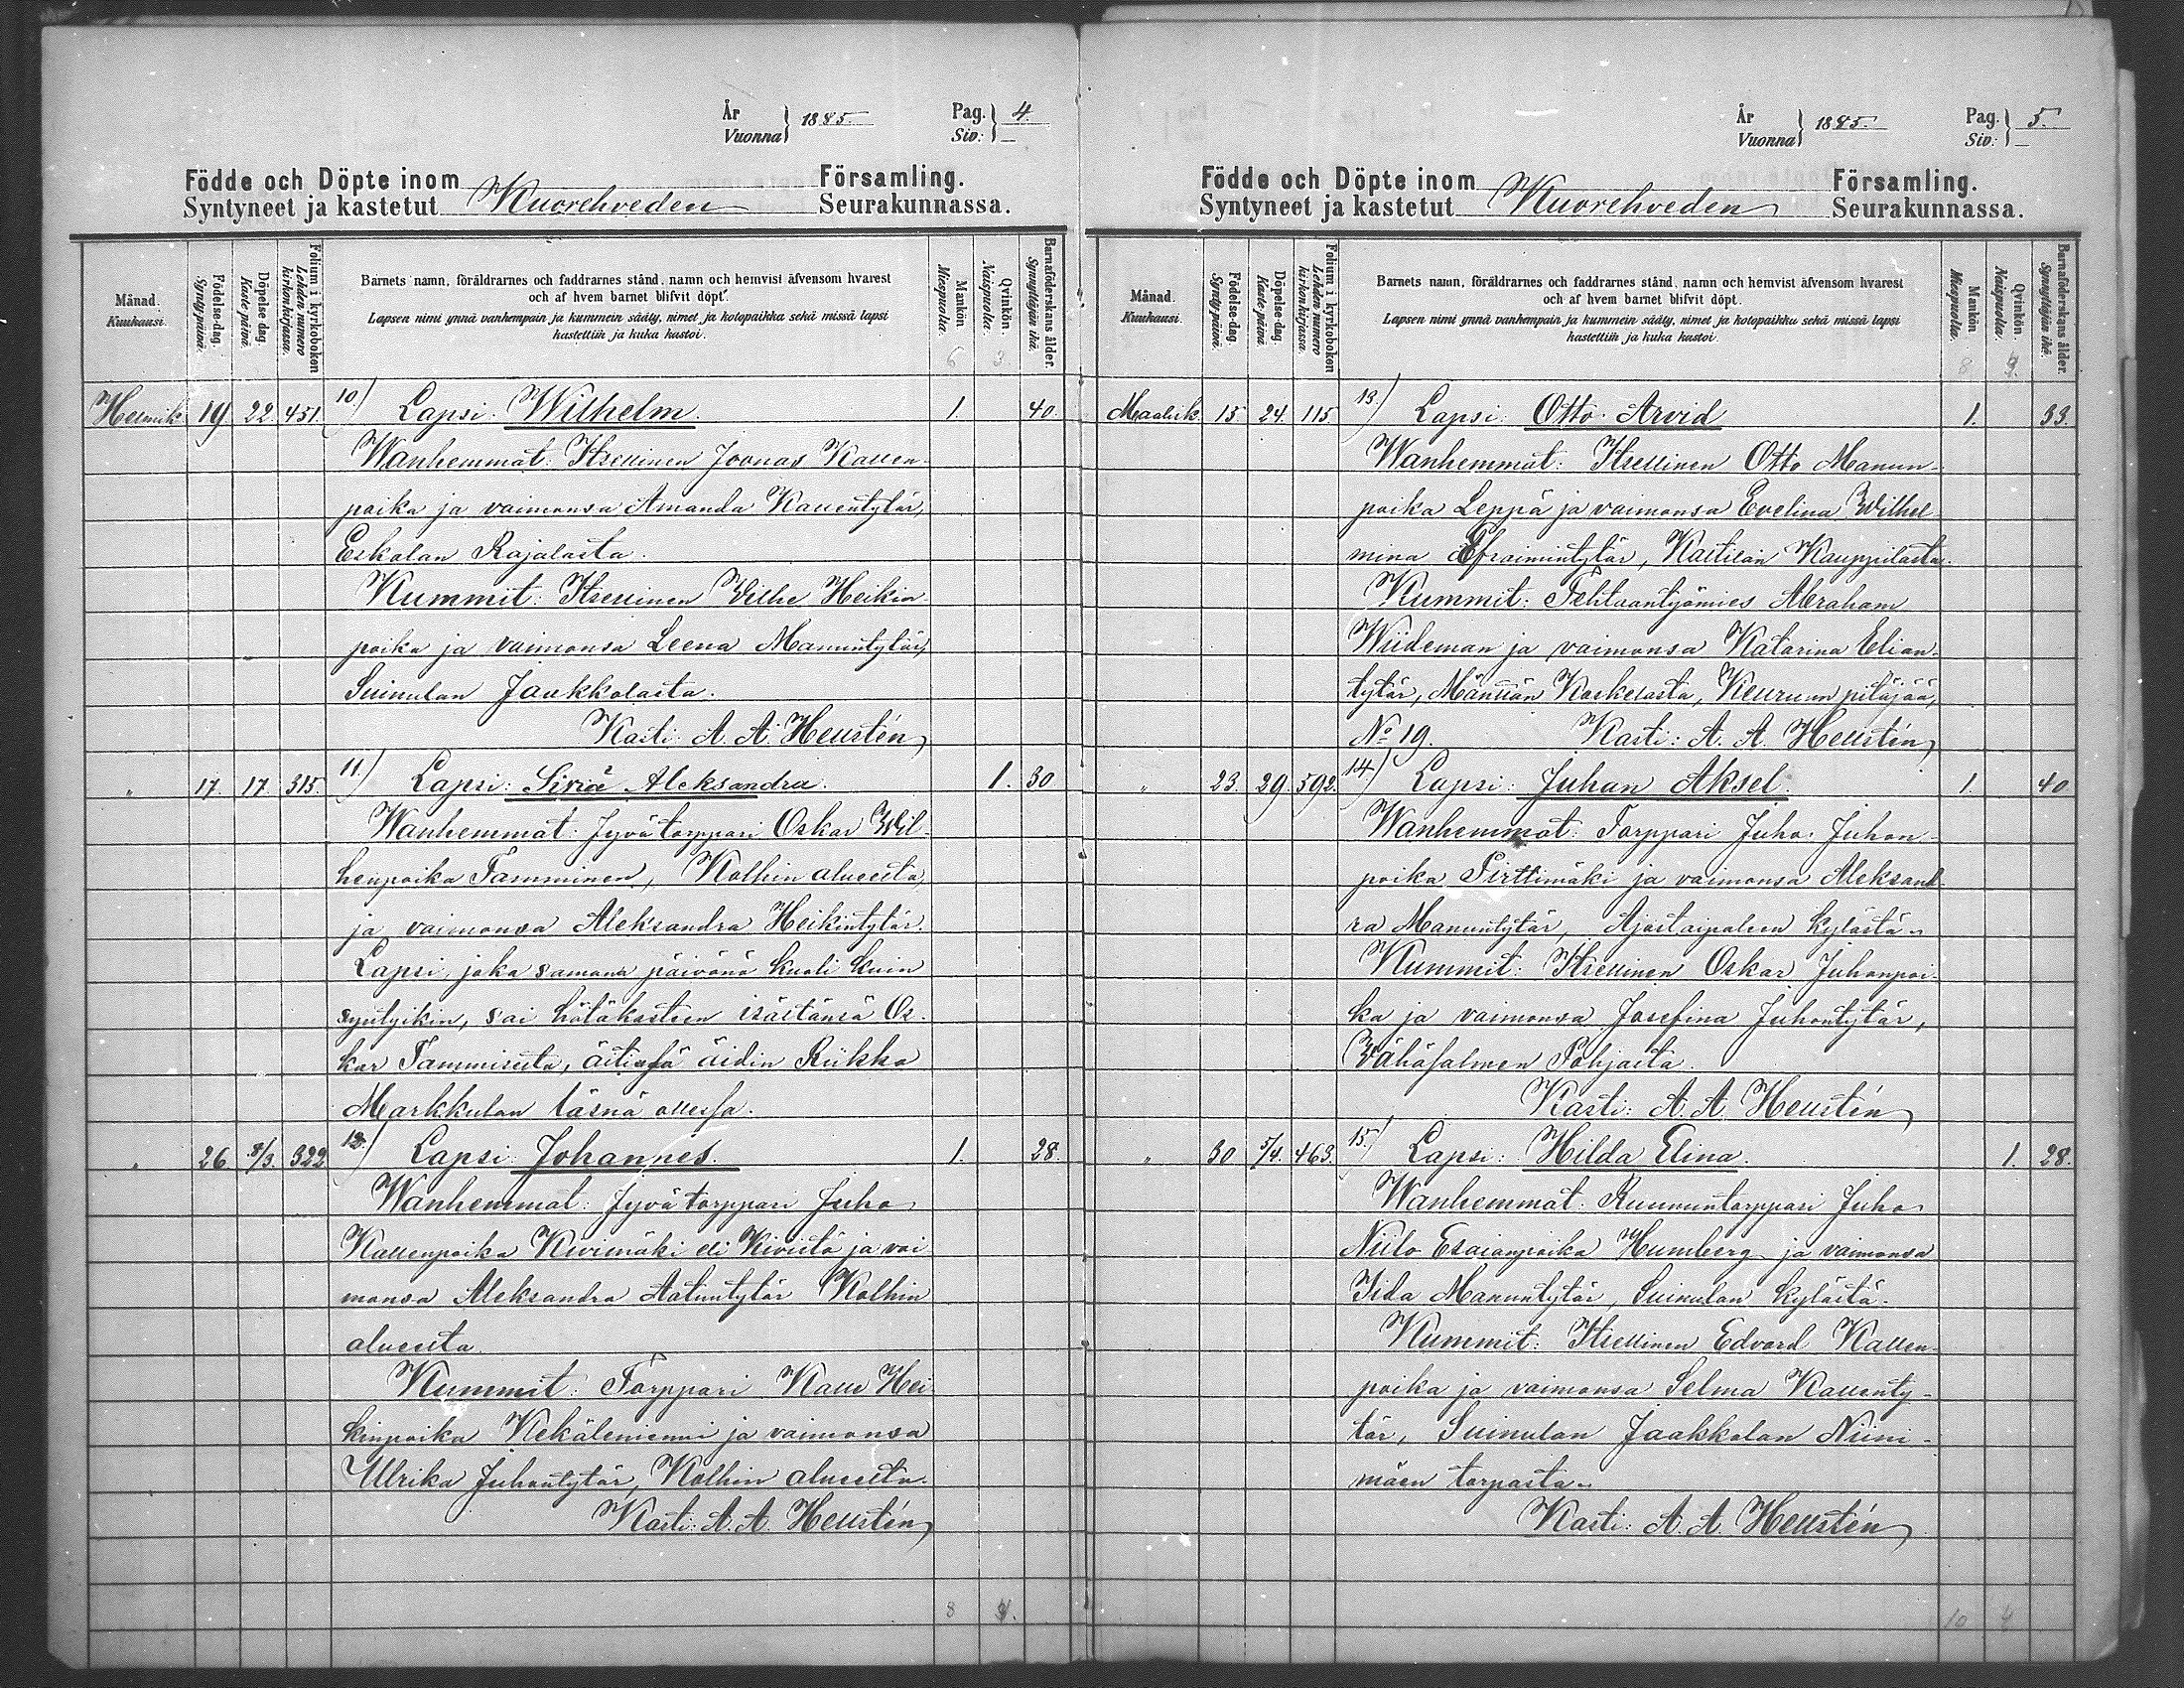 År Vuonna } 1885. Pag. Siv: } 4.
Födde och Döpte inom Församling.
Syntyneet ja kastetut Kuorehveden Seurakunnassa.
Månad. Kuukausi.
Födelse-dag. Syntypäivä.
Döpelse dag. Kaste päivä.
Folium i kyrkoboken Lehden numero kirkonkirjassa.
Barnets namn, föräldrarnes och faddrarnes stånd, namn och hemvist äfvensom hvarest
och af hvem barnet blifvit döpt.
Lapsen nimi ynnä vanhempain ja kummein sääty, nimet ja kotopaikka sekä missä lapsi
kastettiin ja kuka kastoi.
Mankön Miespuolia. 6
Qvinkön. Naispuolia. 3
Barnaföderskans ålder. Synnyttäjän ikä.
Helmik. 19 22. 451. 10) Lapsi: Wilhelm. 1. 40.
Wanhemmat: Itsellinen Joonas Kallen-
poika ja vaimonsa Amanda Kallentytär,
Eskolan Rajalasta.
Kummit: Itsellinen Wilhe Heikin
poika ja vaimonsa Leena Manuntytär,
Suinulan Jaakkolasta.
Kasti: A. A. Hellstén
" 17. 17. 315. 11.) Lapsi: Siviä Aleksandra. 1. 30
Wanhemmat: Jyvätorppari Oskar Wil-
henpoika Tamminen, Kolhin alueesta,
ja vaimonsa Aleksandra Heikintytär.
Lapsi, joka samana päivänä kuoli kuin
syntyikin, sai hätäkasteen isästänsä Os-
kar Tammisesta, äitinsä äidin Riikka
Markkulan läsnä ollessa.
" 26 8/3. 322. 12.) Lapsi: Johannes. 1. 28.
Wanhemmat: Jyvätorppari Juho
Kallenpoika Kivimäki eli Kivistö ja vai
monsa Aleksandra Aatuntytär Kolhin
alueesta.
Kummit: Torppari Kalle Hei
kinpoika Kekäleniemi ja vaimonsa
Ulrika Juhontytär, Kolhin alueesta.
Kasti: A. A. Hellstén
8 4.
År Vuonna } 1885. Pag. Siv: } 5.
Födde och Döpte inom Församling.
Syntyneet ja kastetut Kuorehveden Seurakunnassa.
Månad. Kuukausi.
Födelse-dag. Syntypäivä.
Döpelse-dag. Kaste päivä.
Folium i kyrkoboken Lehden numero kirkonkirjassa.
Barnets namn, föräldrarnes och faddrarnes stånd, namn och hemvist äfvensom hvarest
och af hvem barnet blifvit döpt.
Lapsen nimi ynnä vanhempain ja kummein sääty, nimet ja kotopaikka sekä missä lapsi
kastettiin ja kuka kastoi.
Mankön. Miespuolia. 8
Qvinkön. Naispuolia.
Barnaföderskans ålder. Synnyttäjän ikä.
Maalisk. 15. 24. 115. 13.) Lapsi: Otto Arvid 1. 33.
Wanhemmat: Itsellinen Otto Manun-
poika Leppä ja vaimonsa Evelina Wilhel
mina Efraimintytär, Kastilan Kauppilasta.
Kummit: Tehtaantyömies Abraham
Wiideman ja vaimonsa Katarina Elian-
tytär, Mäntän Koskelasta, Keuruun pitäjää,
No 19. Kasti: A. A. Hellstén
" 23. 29. 592. 14.) Lapsi: Juhan Aksel. 1. 40
Wanhemmat: Torppari Juho Juhon-
poika Pirttimäki ja vaimonsa Aleksand-
ra Manuntytär, Ajostaipaleen kylästä.
Kummit: Itsellinen Oskar Juhonpoi-
ka ja vaimonsa Josefina Juhontytär,
Wähäsalmen Pohjasta.
Kasti: A. A. Hellstén
" 30 5/4. 463. 15.) Lapsi: Hilda Elina. 1. 28.
Wanhemmat: Ruununtorppari Juho
Niilo Esaianpoika Humberg ja vaimonsa
Iida Manuntytär, Suinulan kylästä.
Kummit: Itsellinen Edvard Kallen-
poika ja vaimonsa Selma Kallenty-
tär, Suinulan Jaakkolan Niini-
mäen torpasta.
Kasti: A. A. Hellstén
10 4